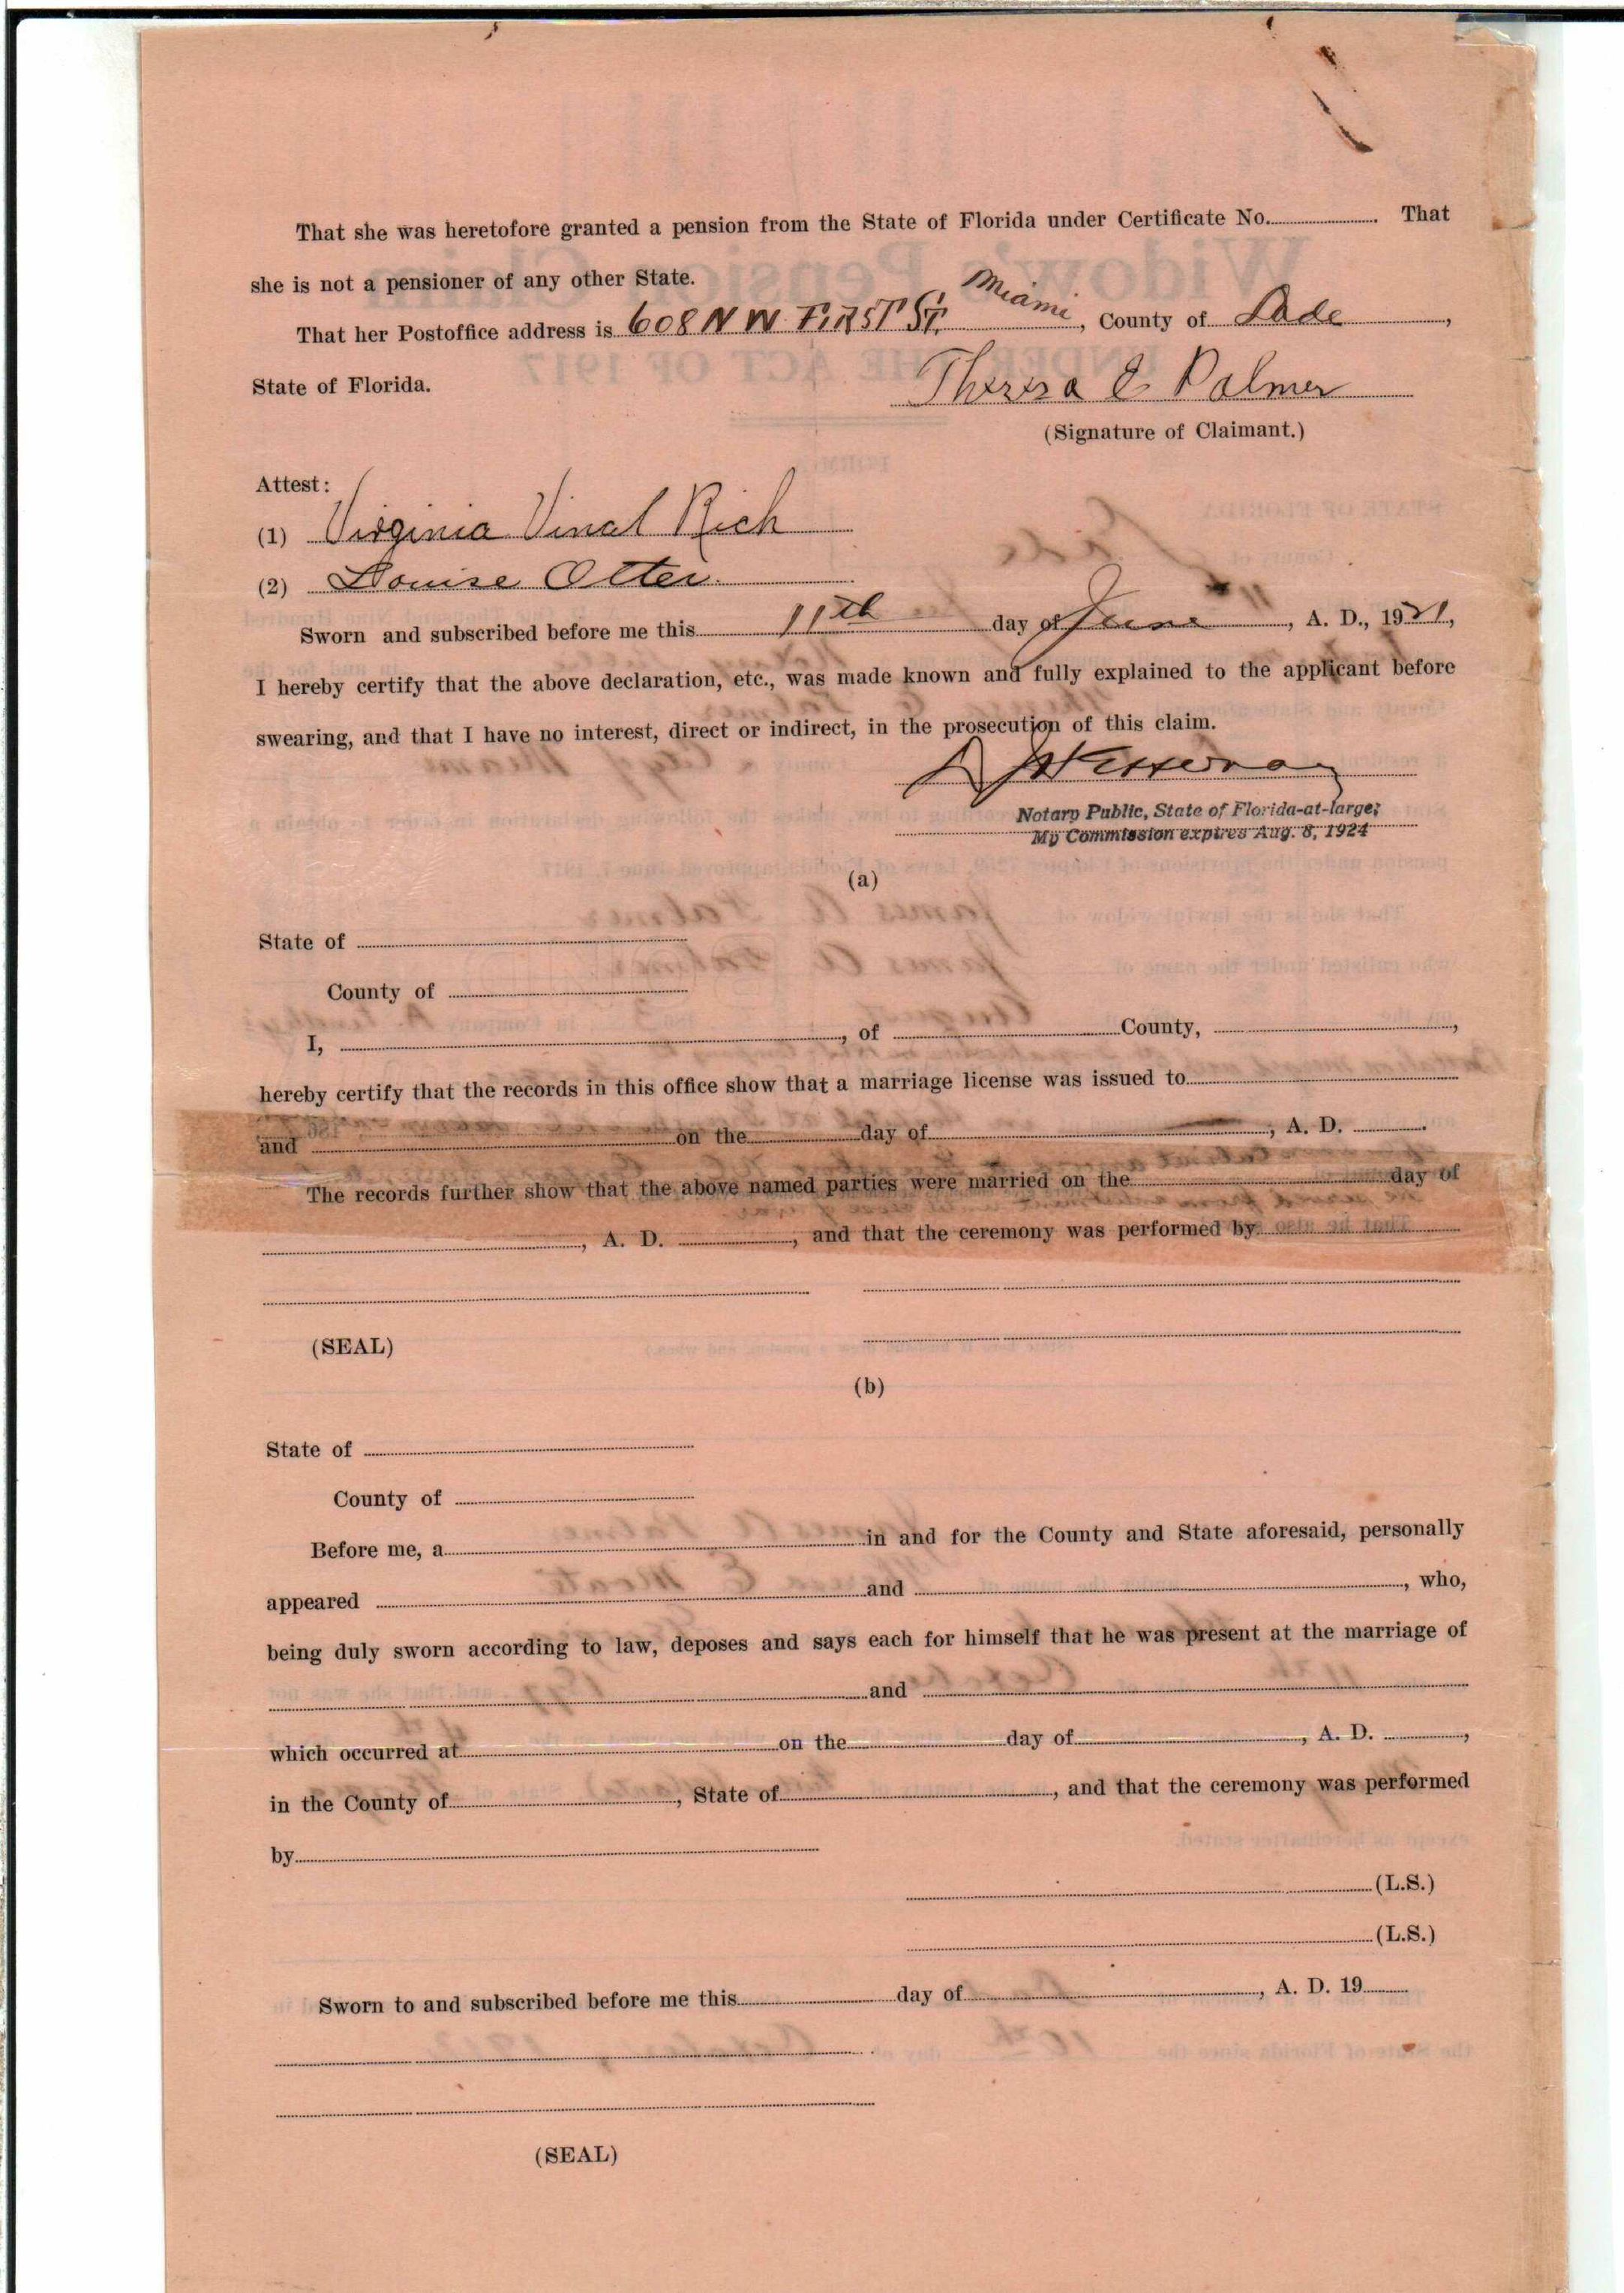 That she was heretofore granted a pension from the State of Florida under Certificate No. . That
she is not a pensioner of any other State.
That her Postoffice address is 608 N W FIRST ST. Miami, County of Dade,
State of Florida.
Theresa E Palmer
(Signature of Claimant.)
Attest:
(1) Virginia Vinal Rich
(2) Louise Otter.
Sworn and subscribed before me this 11th day of June, A. D., 1921,
I hereby certify that the above declaration, etc., was made known and fully explained to the applicant before
swearing, and that I have no interest, direct or indirect, in the prosecution of this claim.
Notary Public, State of Florida-at-large;
My Commission expires Aug. 8, 1924
(a)
State of
County of
I, , of County, ,
hereby certify that the records in this office show that a marriage license was issued to
and on the day of , A. D. .
The records further show that the above named parties were married on the day of
, A. D. , and that the ceremony was performed by
(SEAL)
(b)
State of
County of
Before me, a in and for the County and State aforesaid, personally
appeared and , who,
being duly sworn according to law, deposes and says each for himself that he was present at the marriage of
and
which occurred at on the day of , A. D. ,
in the County of , State of , and that the ceremony was performed
by
(L.S.)
(L.S.)
Sworn to and subscribed before me this day of , A. D. 19
(SEAL)